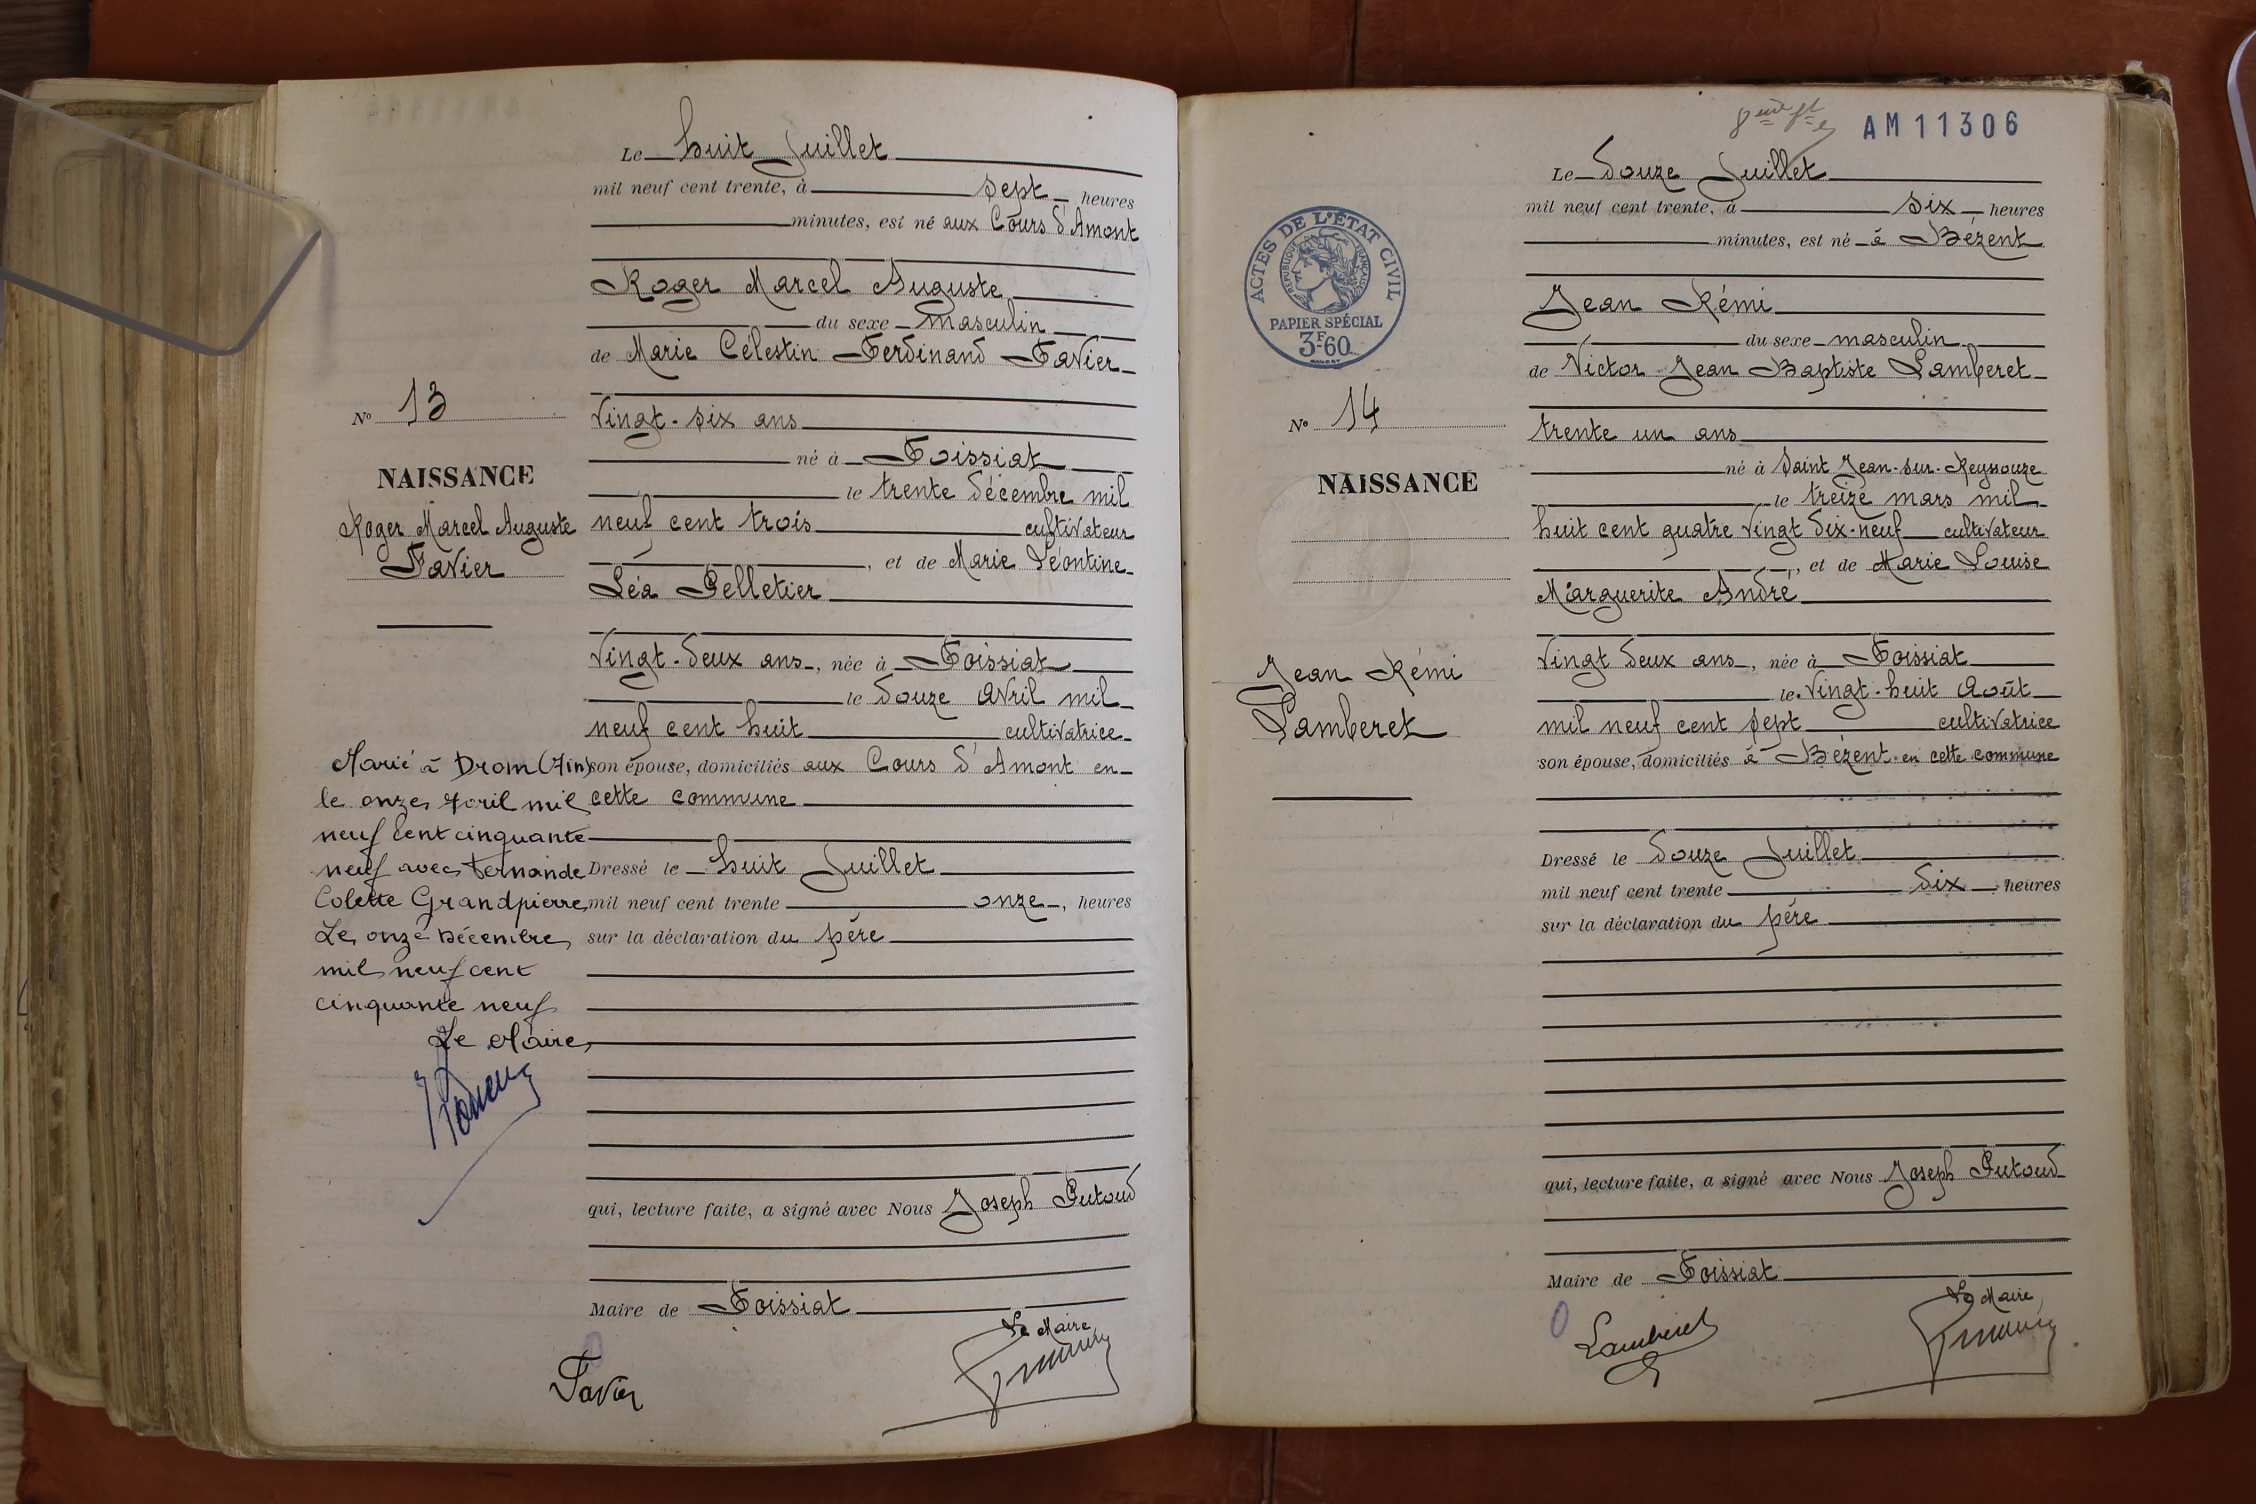 Le huit Juillet
mil neuf cent trente, à sept heures
minutes, est né aux Cours d'Amont
Roger Marcel Auguste
du sexe masculin
de Marie Célestin Ferdinand Favier
vingt-six ans
né à Foissiat
le trente décembre mil
neuf cent trois cultivateur
, et de Marie Léontine
Léa Pelletier
vingt-deux ans, née à Foissiat
le douze avril mil
neuf cent huit cultivatrice
son épouse, domiciliés aux Cours d'Amont en
cette commune
Dressé le huit Juillet
mil neuf cent trente onze, heures
sur la déclaration du père
qui, lecture faite, a signé avec Nous Joseph Putoud
Maire de Foissiat
Le Maire,
Favier
No 13
NAISSANCE
Roger Marcel Auguste
Favier
Marié à Drom (Ain)
le onze Avril mil
neuf cent cinquante
neuf avec Fernande
Colette Grandpierre,
Le onze Décembre
mil neuf cent
cinquante neuf
Le Maire,
AM11306
Le douze Juillet
mil neuf cent trente, à six heures
minutes, est né à Bézent
Jean Rémi
du sexe masculin
de Victor Jean Baptiste Lamberet
trente un ans
né à Saint Jean-sur-Reyssouze
le treize mars mil
huit cent quatre vingt dix-neuf cultivateur
, et de Marie Louise
Marguerite André
vingt deux ans, née à Foissiat
le vingt-huit Août
mil neuf cent sept cultivatrice
son épouse, domiciliés à Bézent en cette commune
Dressé le douze Juillet
mil neuf cent trente dix heures
sur la déclaration du père
qui, lecture faite, a signé avec Nous Joseph Putoud
Maire de Foissiat
Le Maire,
Lamberet
ACTES DE L'ÉTAT CIVIL
RÉPUBLIQUE FRANÇAISE
PAPIER SPÉCIAL
3F60
No 14
NAISSANCE
Jean Rémi
Lamberet